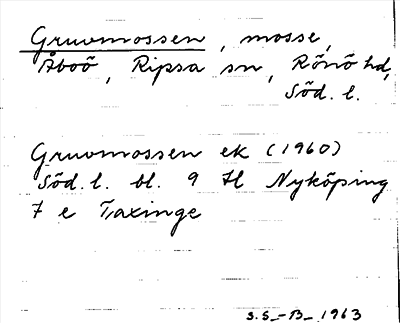 Gruvmossen, mosse,
Åboö, Ripsa sn, Rönö hd,
Söd. l.
Gruvmossen ek (1960)
Söd. l. bl. 9 H Nyköping
7 e Taxinge
S.S-B- 1963